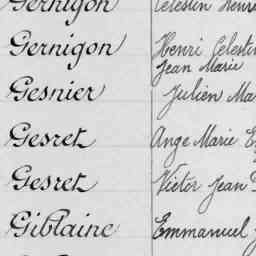 Gernigon Célestin Henri
Gernigon Henri Célestin
Jean Marie
Gesnier Julien Ma
Gesret Ange Marie
Gesret Victor Jean
Giblaine Emmanuel